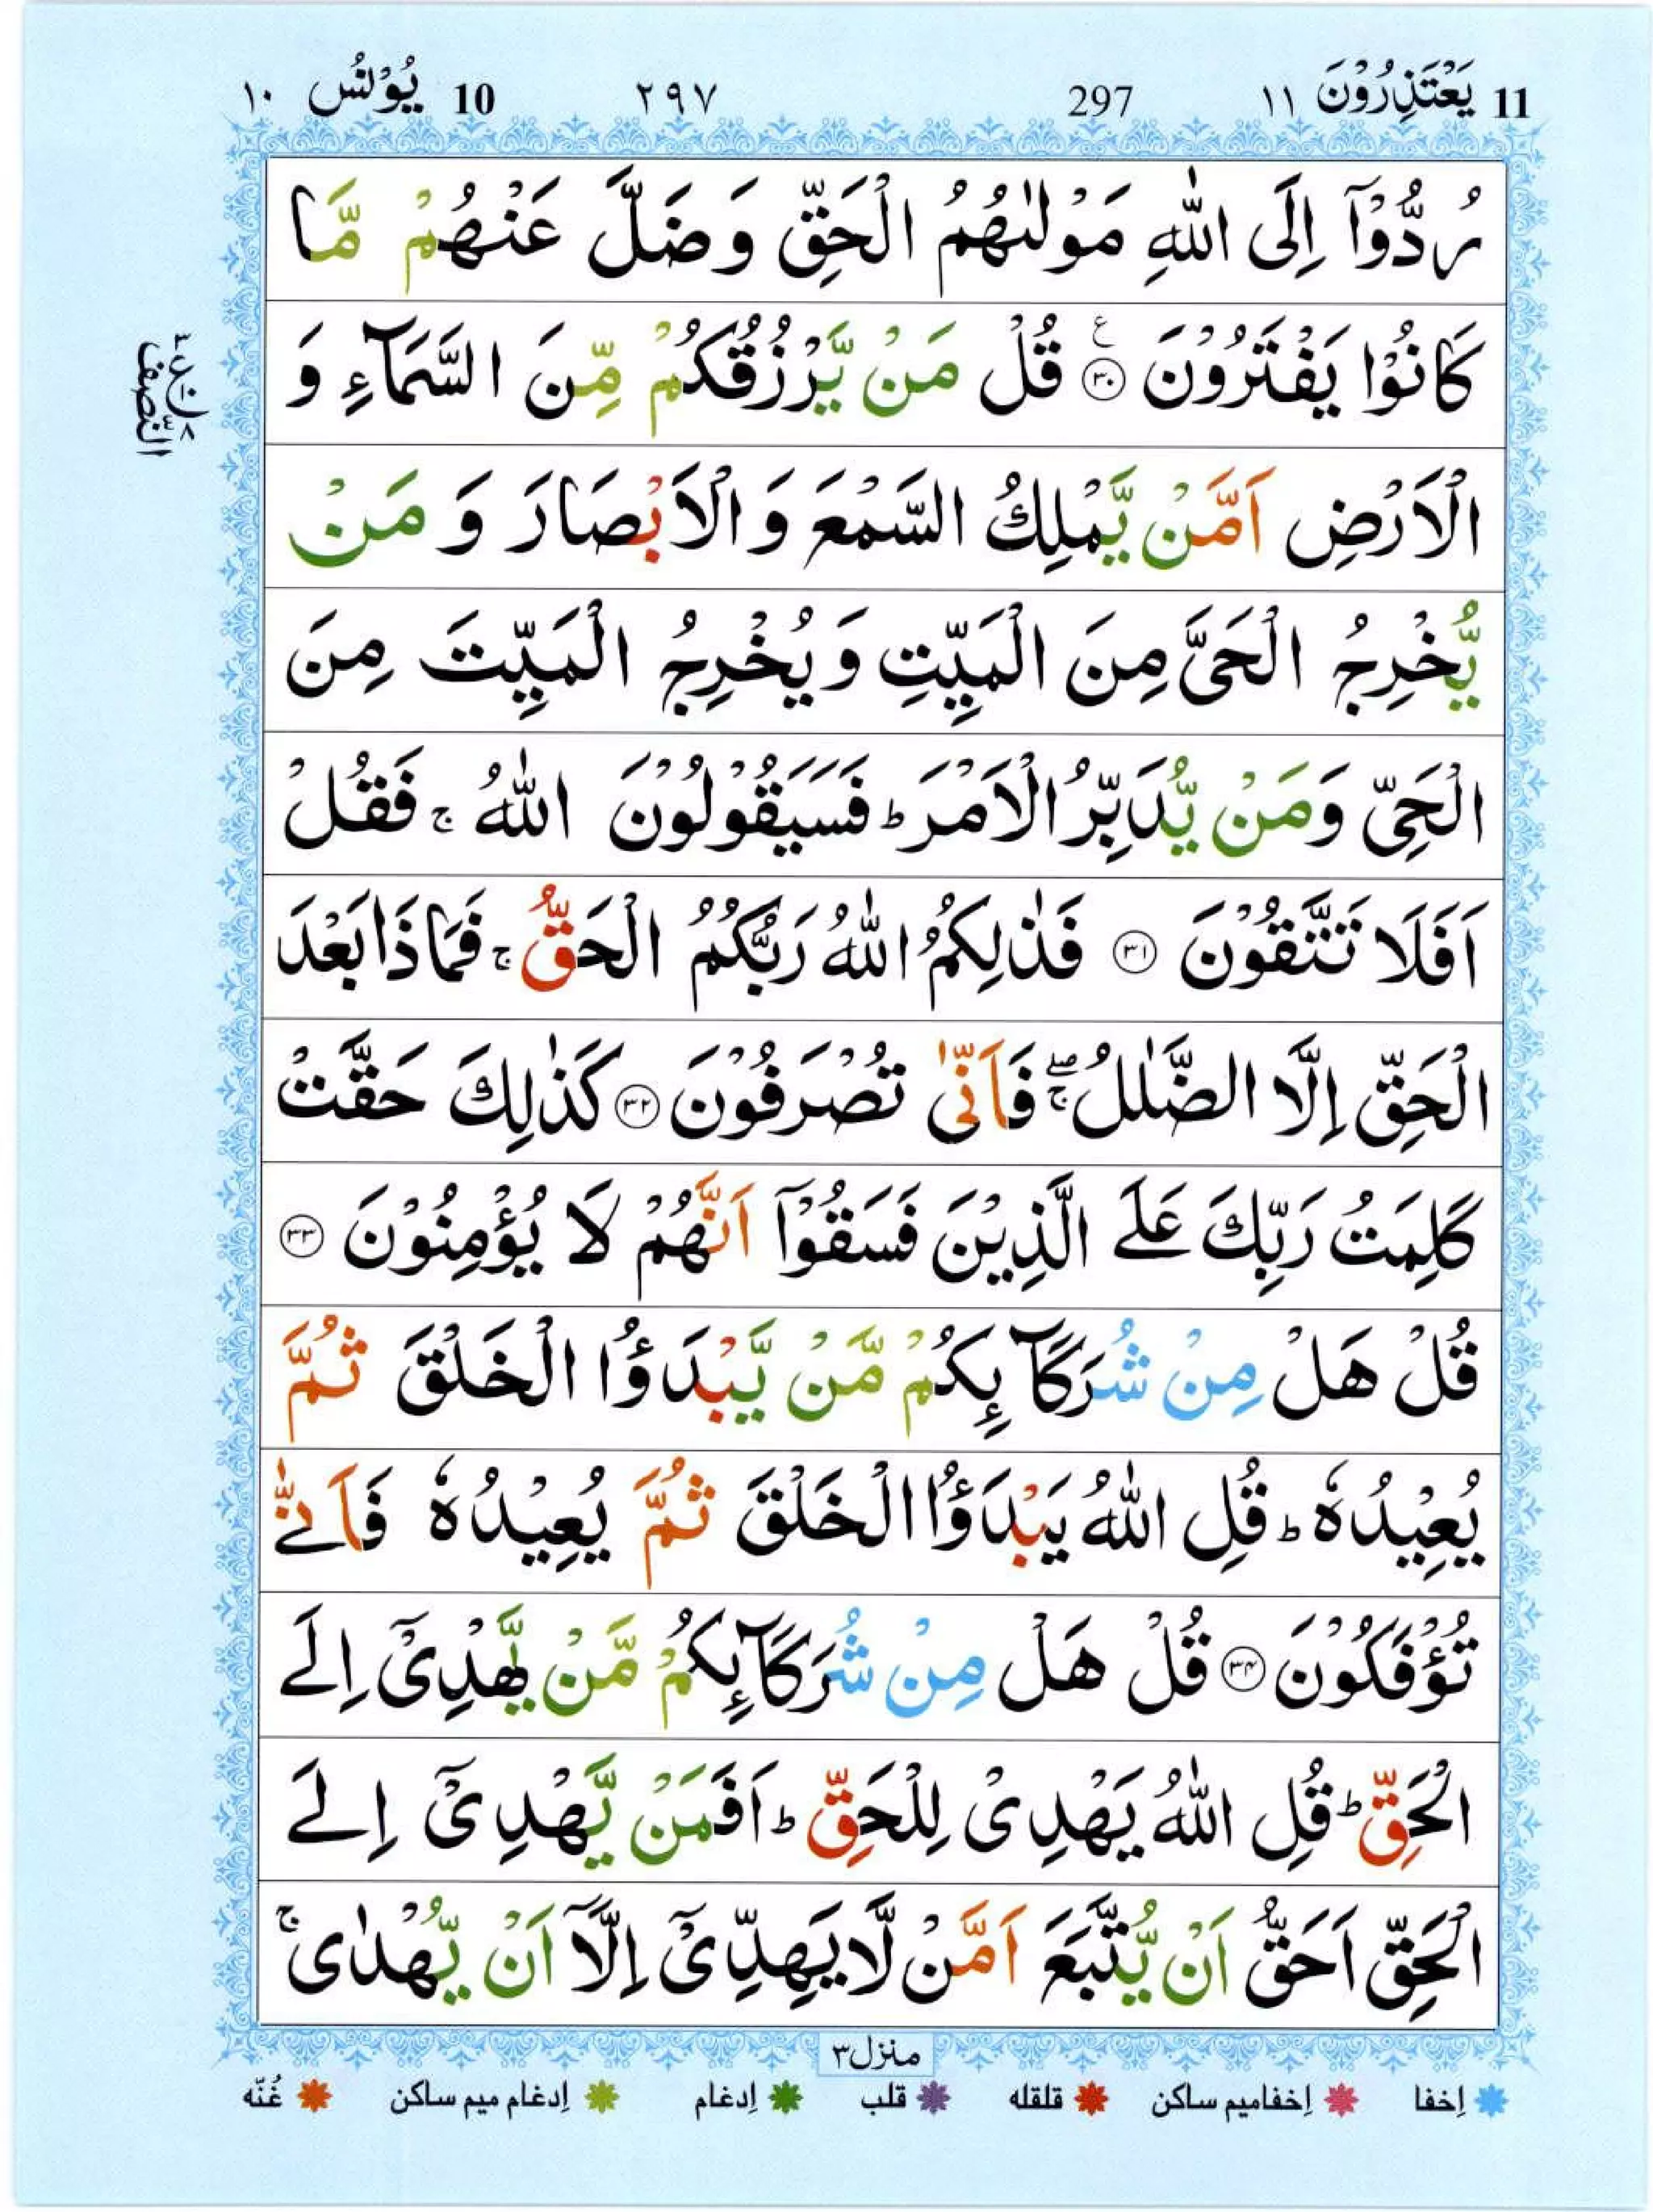 11 يَعْتَذِرُوْنَ ١١ 297 ٢٩٧ 10 يُوْنُس ١٠
رُدُّوْۤا اِلَى اللّٰهِ مَوْلٰىهُمُ الْحَقِّ وَ ضَلَّ عَنْهُمْ مَّا
كَانُوْا يَفْتَرُوْنَ ﴿۳۰﴾ ع قُلْ مَنْ یَّرْزُقُكُمْ مِّنَ السَّمَآءِ وَ
الْاَرْضِ اَمَّنْ یَّمْلِكُ السَّمْعَ وَ الْاَبْصَارَ وَ مَنْ
یُّخْرِجُ الْحَیَّ مِنَ الْمَیِّتِ وَ یُخْرِجُ الْمَیِّتَ مِنَ
الْحَیِّ وَ مَنْ یُّدَبِّرُ الْاَمْرَ ؕ فَسَیَقُوْلُوْنَ اللّٰهُ ۚ فَقُلْ
اَفَلَا تَتَّقُوْنَ ﴿۳۱﴾ فَذٰلِكُمُ اللّٰهُ رَبُّكُمُ الْحَقُّ ۚ فَمَا ذَا بَعْدَ
الْحَقِّ اِلَّا الضَّلٰلُ ۖۚ فَاَنّٰی تُصْرَفُوْنَ ﴿۳۲﴾ كَذٰلِكَ حَقَّتْ
كَلِمَتُ رَبِّكَ عَلَی الَّذِیْنَ فَسَقُوْۤا اَنَّهُمْ لَا یُؤْمِنُوْنَ ﴿۳۳﴾
قُلْ هَلْ مِنْ شُرَكَآىِٕكُمْ مَّنْ یَّبْدَؤُا الْخَلْقَ ثُمَّ
یُعِیْدُهٗ ؕ قُلِ اللّٰهُ یَبْدَؤُا الْخَلْقَ ثُمَّ یُعِیْدُهٗ فَاَنّٰی
تُؤْفَكُوْنَ ﴿۳۴﴾ قُلْ هَلْ مِنْ شُرَكَآىِٕكُمْ مَّنْ یَّهْدِیْۤ اِلَی
الْحَقِّ ؕ قُلِ اللّٰهُ یَهْدِیْ لِلْحَقِّ ؕ اَفَمَنْ یَّهْدِیْۤ اِلَی
الْحَقِّ اَحَقُّ اَنْ یُّتَّبَعَ اَمَّنْ لَّا یَهِدِّیْۤ اِلَّاۤ اَنْ یُّهْدٰی ۚ
النصف
منزل۳
إخفا إخفامیم ساكن قلقله قلب إدغام إدغام میم ساكن غُنّه